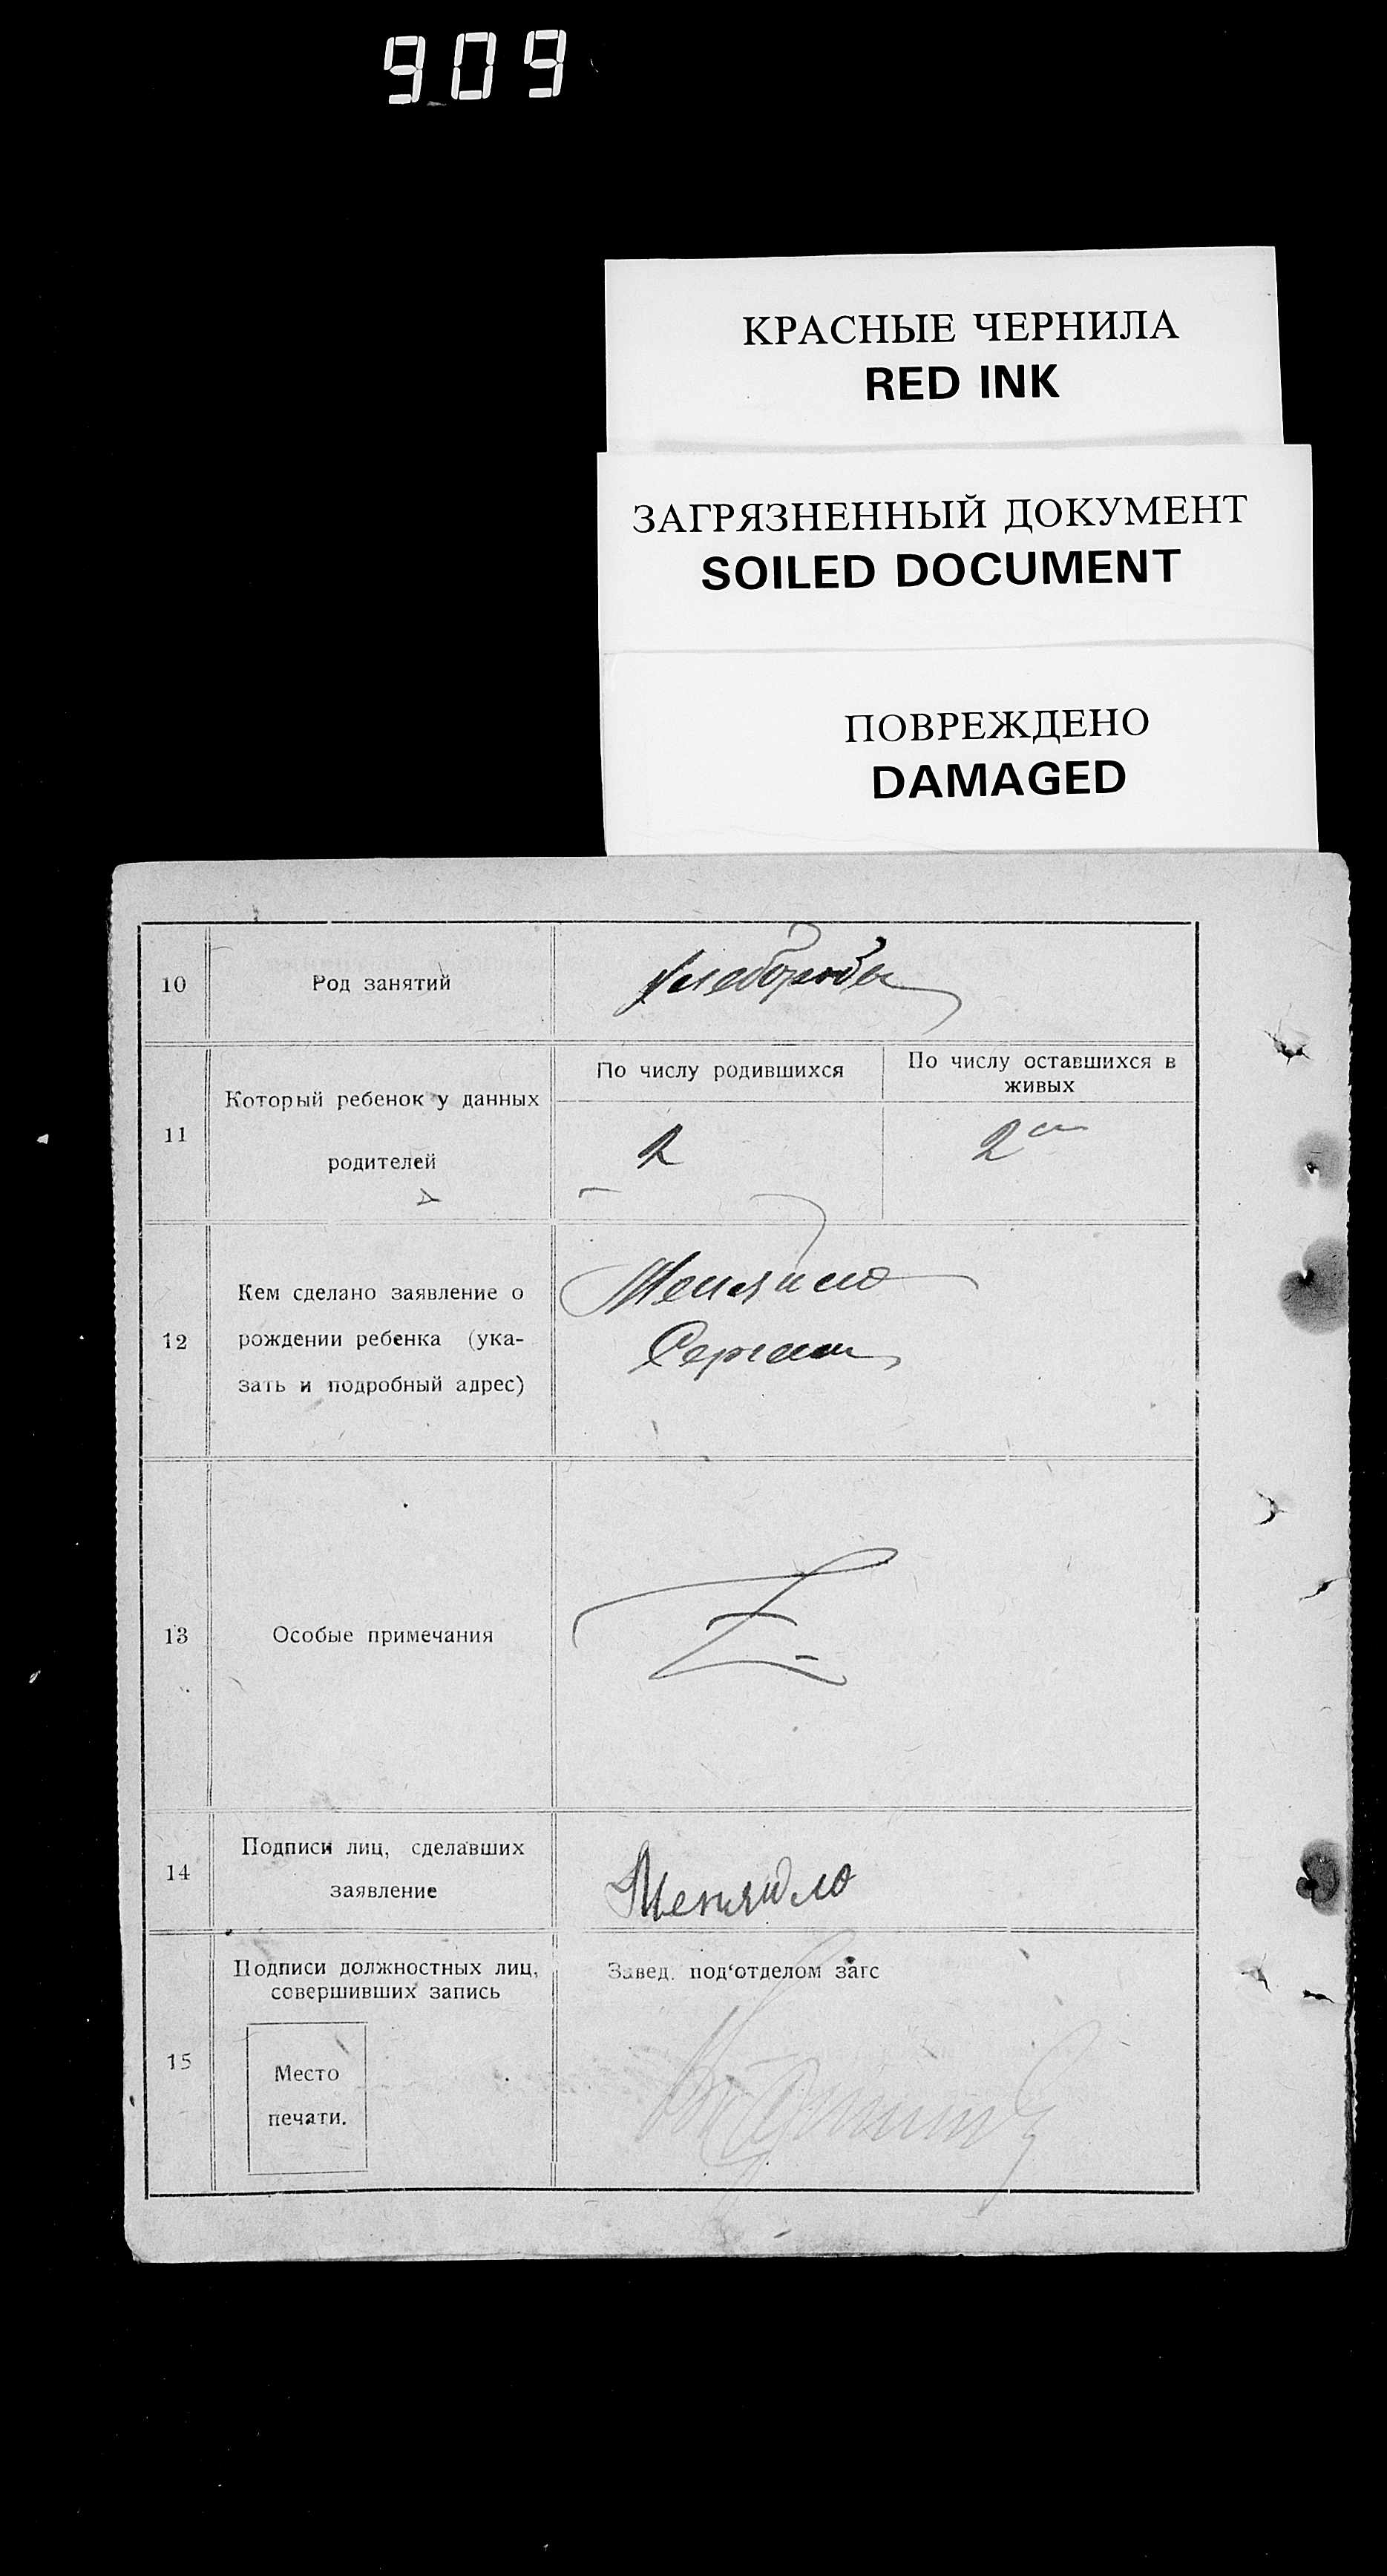 909
КРАСНЫЕ ЧЕРНИЛА
RED INK
ЗАГРЯЗНЕННЫЙ ДОКУМЕНТ
SOILED DOCUMENT
ПОВРЕЖДЕНО
DAMAGED
10
Род занятий
Хлеборобы
11
Который ребенок у данных
родителей
По числу родившихся
По числу оставшихся в
живых
2
2
12
Кем сделано заявление о
рождении ребенка (ука-
зать и подробный адрес)
Меняйло
13
Особые примечания
14
Подписи лиц, сделавших
заявление
Меняйло
15
Подписи должностных лиц,
совершивших запись
Место
печати.
Завед. под‘отделом загс